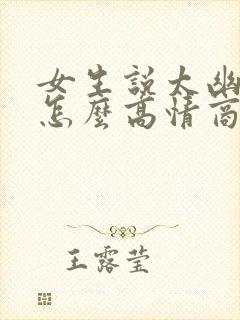 女生說太幽
怎麼高情商
王露莹